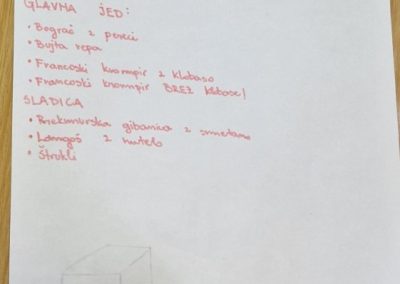 GLAVNA JED:
• Bograč z pereci
• Bujta repa
• Francoski krompir z klobaso
• Francoski krompir BREZ klobase!
SLADICA
• Prekmurska gibanica z smetano
• Langoš z nutelo
• Štrukli